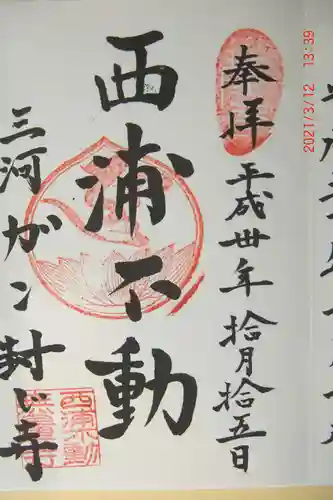 奉拝
平成卅年拾月拾五日
西浦不動
三河ガン封じ寺
2021/3/12 13:39